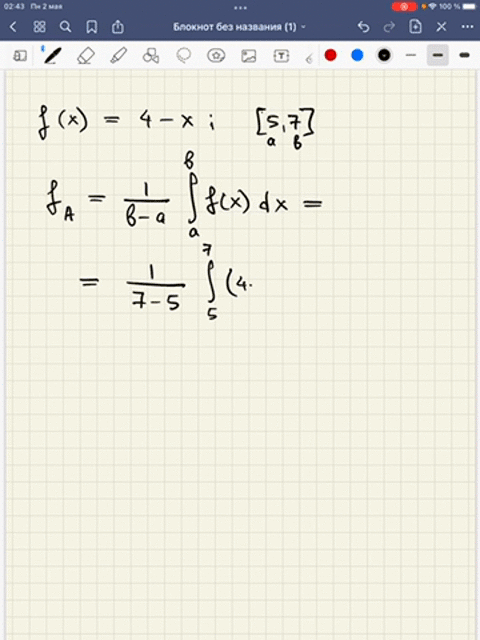 02:43 Пн 2 мая 100 %
Блокнот без названия (1)
f(x) = 4 - x ; [5,7]
a b
b
f_A = 1/(b-a) ∫ f(x) dx =
a
7
= 1/(7-5) ∫ (4-
5